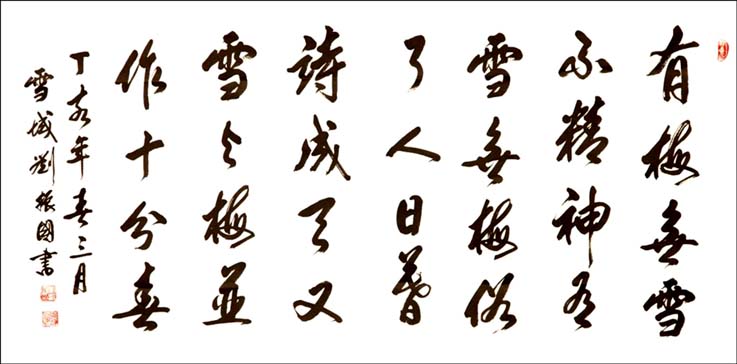 有梅無雪
不精神有
雪無梅俗
了人日暮
詩成天又
雪与梅並
作十分春
丁亥年春三月
雪城劉振國書